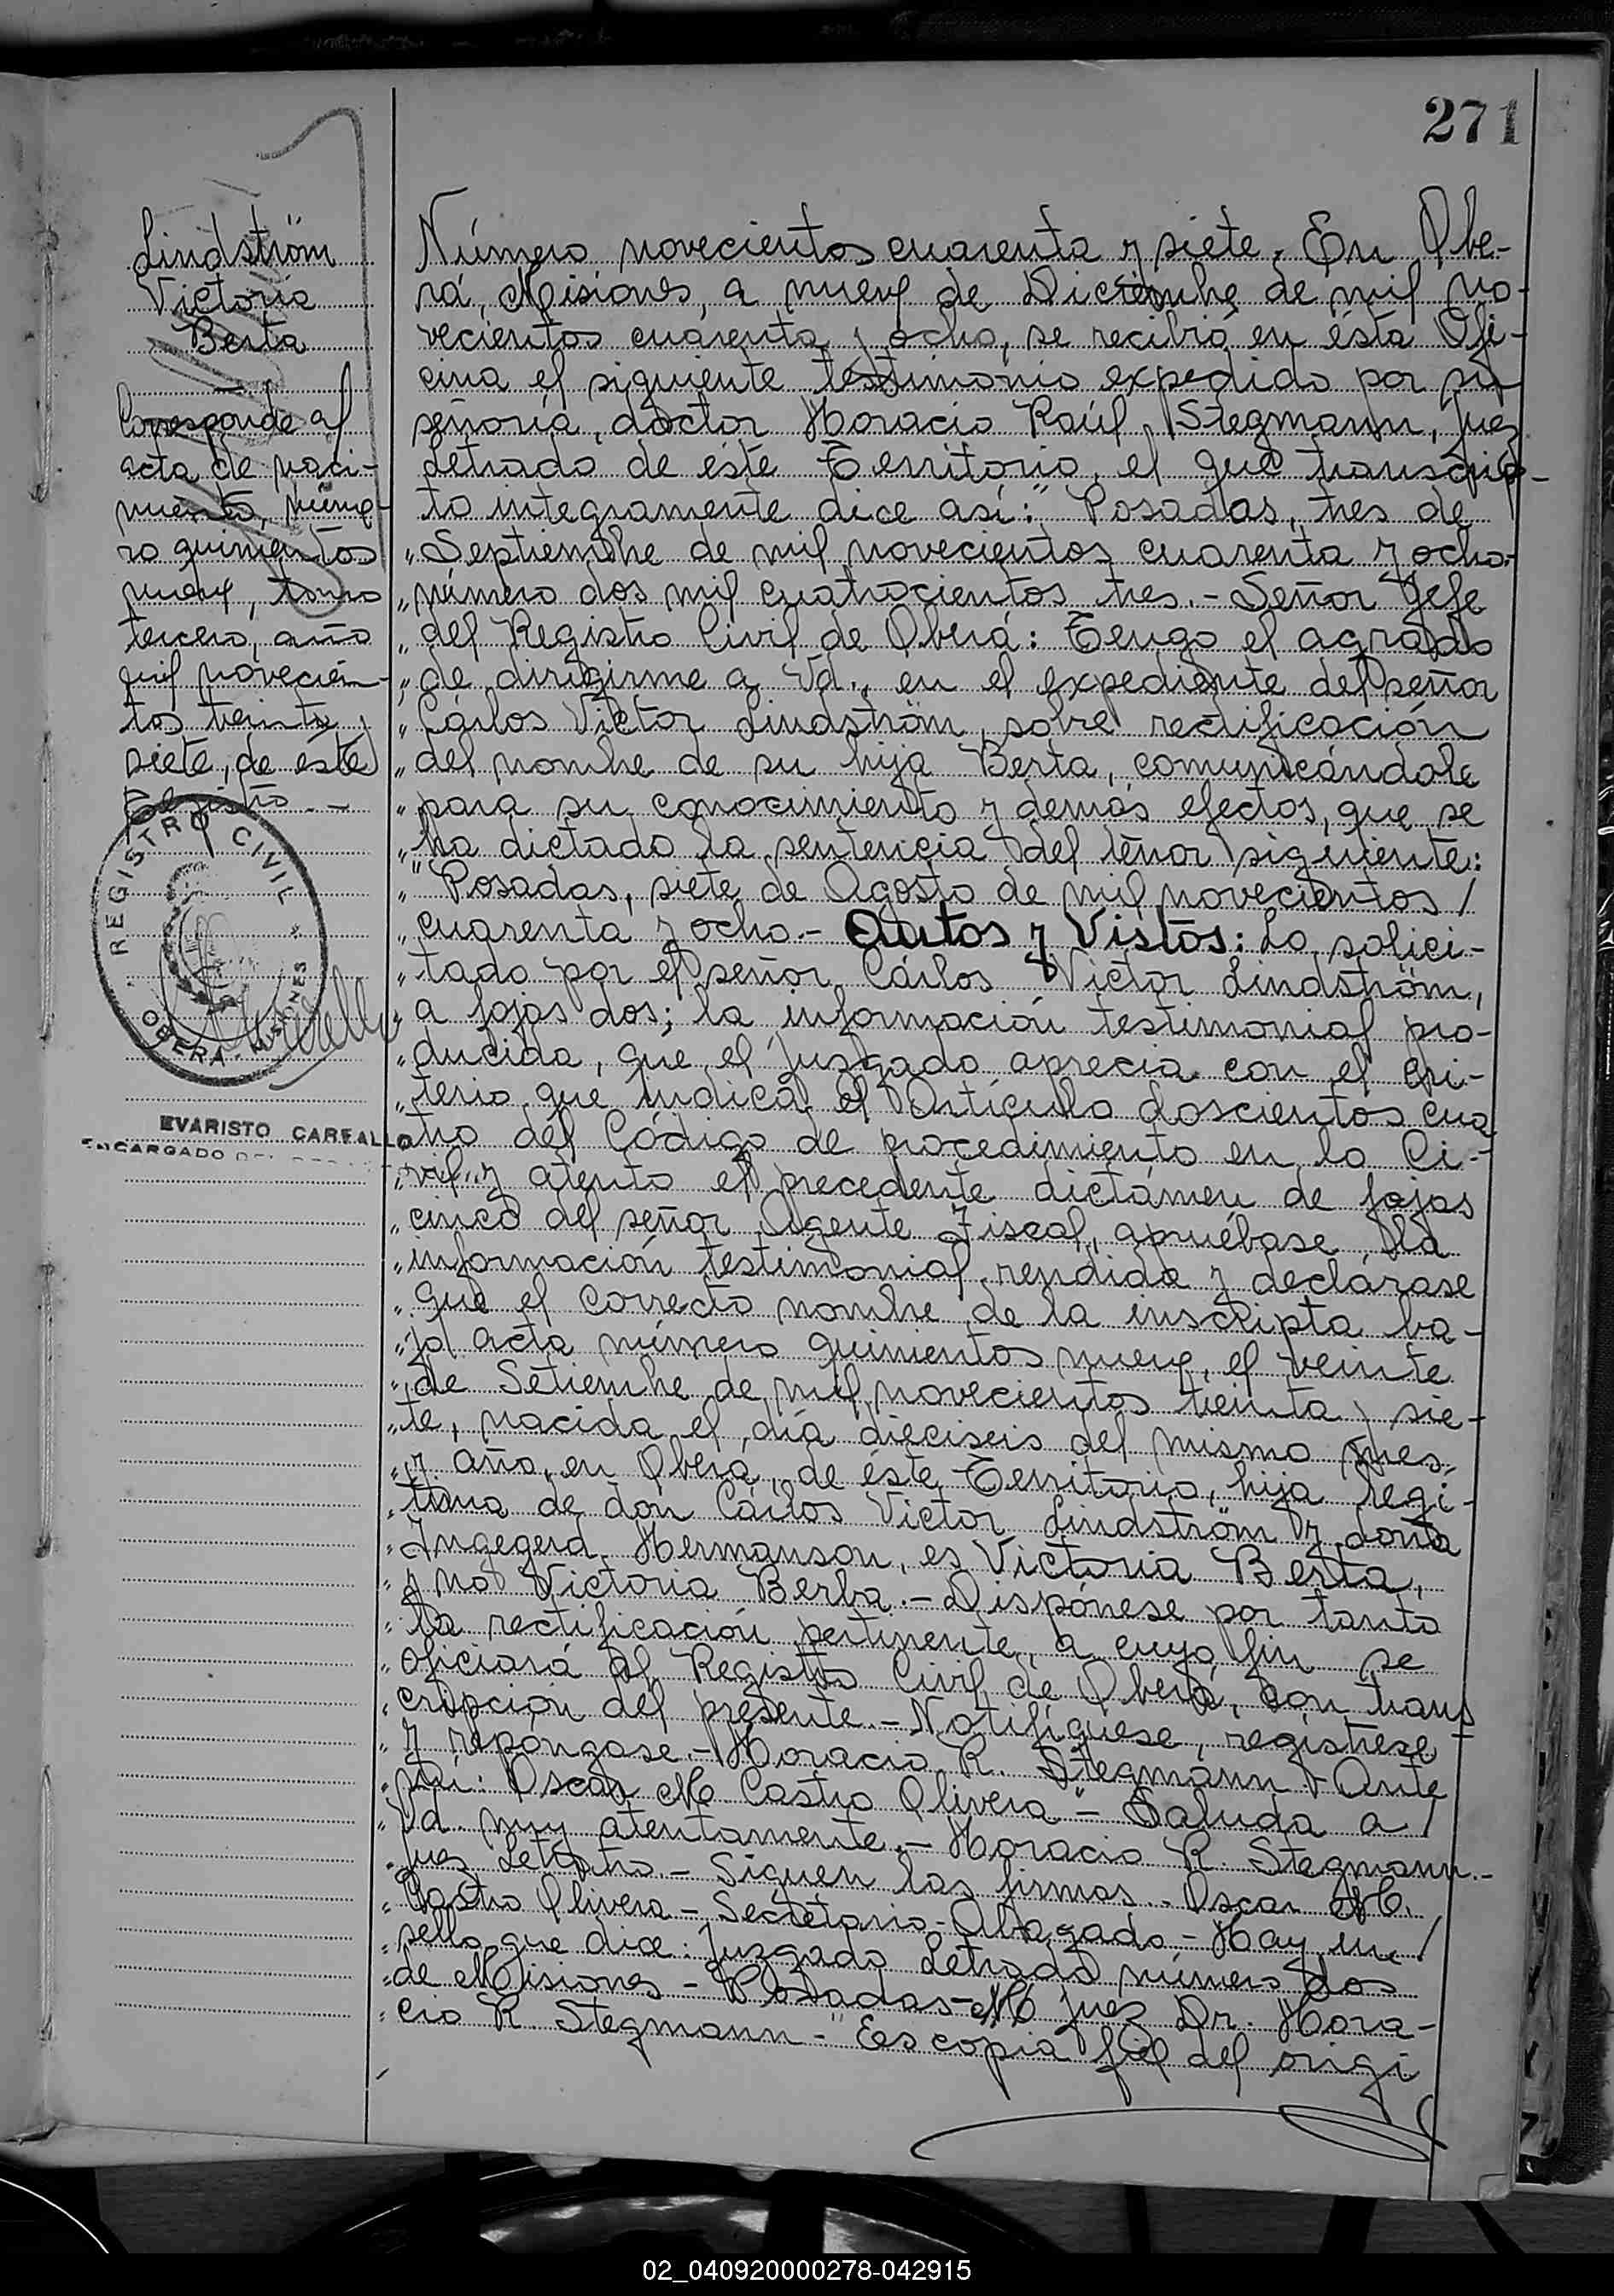 271
Lindström
Victoria
Berta
Corresponde al
acta de naci-
miento, núme-
ro quinientos
nueve, tomo
tercero, año
mil novecien-
tos treinta y
siete, de éste
Registro.-
REGISTRO CIVIL
OBERÁ - MISIONES
EVARISTO CARFALLO
ENCARGADO DEL
Número novecientos cuarenta y siete. En Obe-
rá, Misiones, a nueve de Diciembre de mil no-
vecientos cuarenta y ocho, se recibió en ésta Ofi-
cina el siguiente testimonio expedido por su
señoría, doctor Horacio Raúl Stegmann, Juez
Letrado de éste Territorio, el que transcrip-
to integramente dice así: "Posadas, tres de
"Septiembre de mil novecientos cuarenta y ocho.-
"número dos mil cuatrocientos tres.- Señor Jefe
"del Registro Civil de Oberá: Tengo el agrado
"de dirigirme a Vd., en el expediente del señor
"Cárlos Victor Lindström, sobre rectificación
"del nombre de su hija Berta, comunicándole
"para su conocimiento y demás efectos, que se
"ha dictado la sentencia del tenor siguiente:
""Posadas, siete de Agosto de mil novecientos /
"cuarenta y ocho.- Autos y Vistos: Lo solici-
"tado por el señor Cárlos Victor Lindström,
"a fojas dos; la información testimonial pro-
"ducida, que el juzgado aprecia con el cri-
"terio que indica el Artículo doscientos cua
"tro del Código de procedimiento en lo Ci-
"vil y atento el precedente dictámen de fojas
"cinco del señor Agente Fiscal, apruébase la
"información testimonial rendida y declárase
"que el correcto nombre de la inscripta ba-
"jo acta número quinientos nueve, el veinte
"de Setiembre de mil novecientos treinta y sie-
"te, nacida el día dieciseis del mismo mes
"y año, en Oberá, de éste Territorio, hija legí-
"tima de don Cárlos Victor Lindström y doña
"Ingegerd Hermanson, es Victoria Berta,
"y no Victoria Berba.- Dispónese por tanto
"la rectificación pertinente, a cuyo fin se
"oficiará al Registro Civil de Oberá, con trans
"cripción del presente.- Notifíquese, regístrese
"y repóngase.- Horacio R. Stegmann - Ante
"mí: Oscar M. Castro Olivera"- Saluda a /
"Vd. muy atentamente.- Horacio R. Stegmann.-
"Juez Letrado.- Siguen las firmas.- Oscar M.
"Castro Olivera - Secretario - Abogado - Hay un /
"sello que dice: Juzgado Letrado número dos
"de Misiones - Posadas - Juez Dr. Hora-
"cio R. Stegmann-" Es copia fiel del origi
02_040920000278-042915